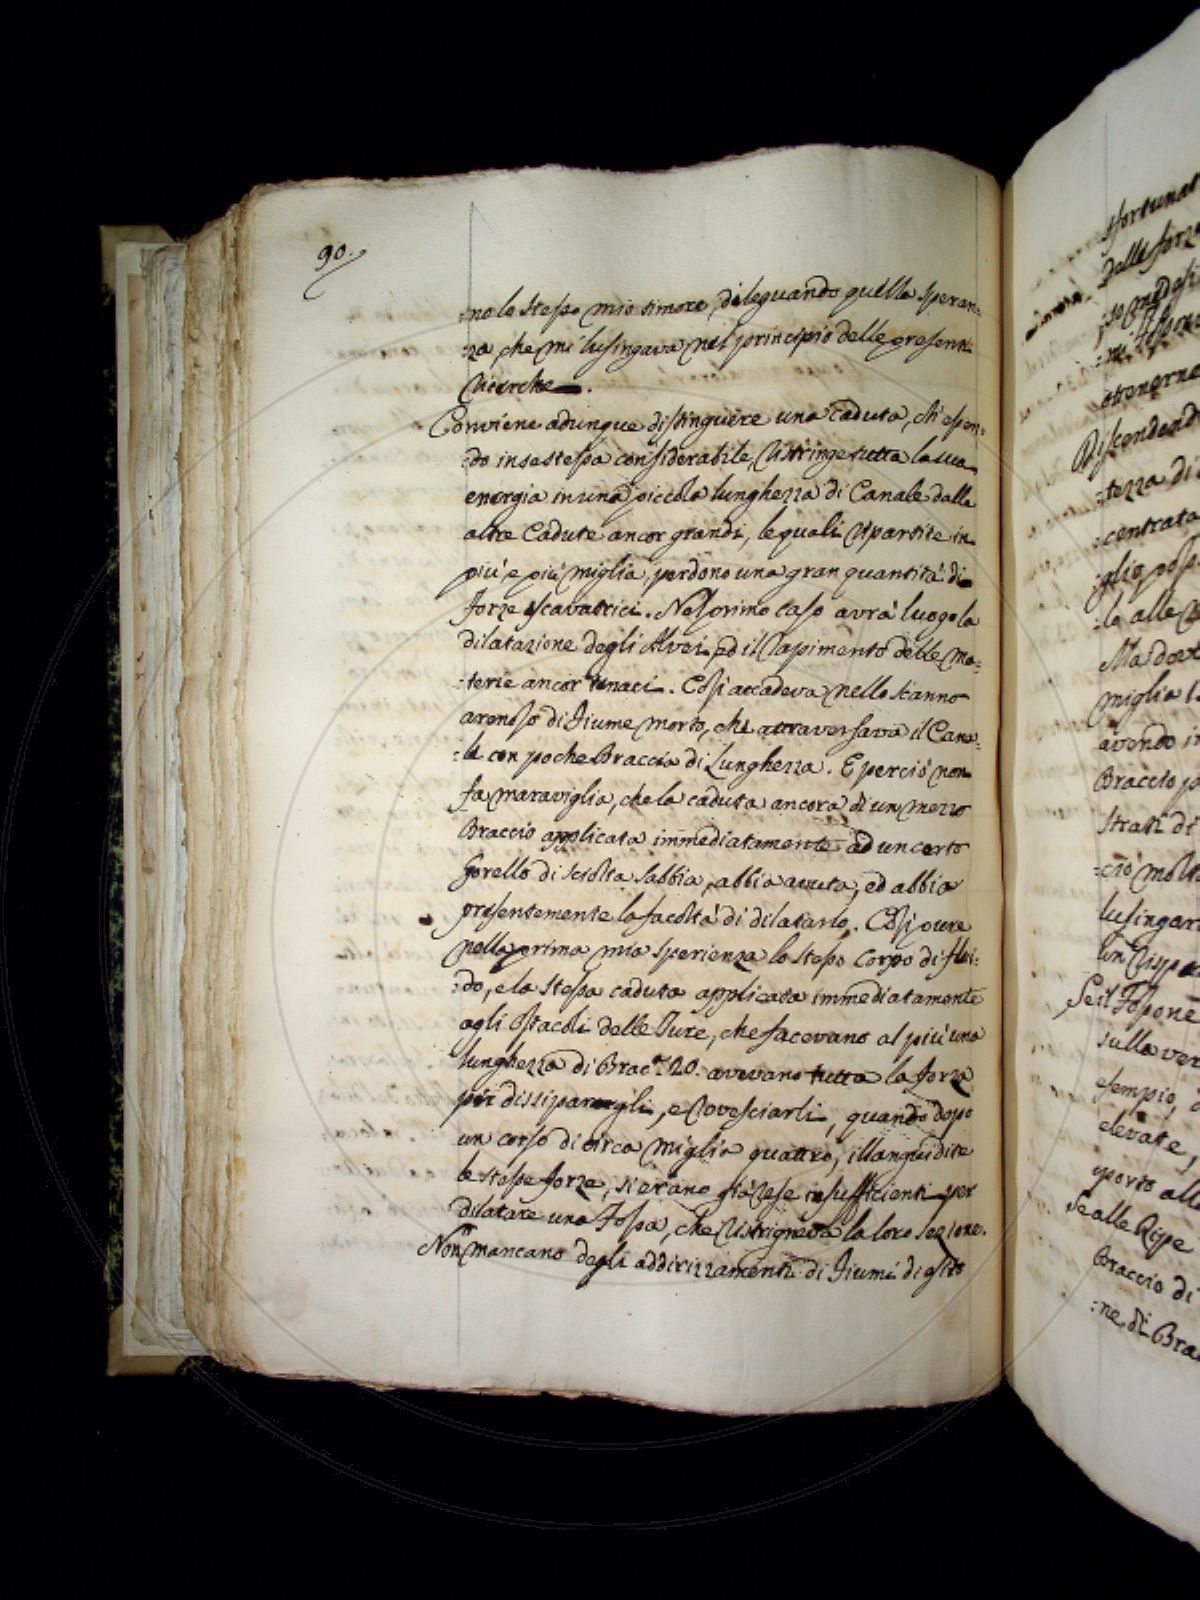 90.
:no lo stesso mio timore, dileguando quella speran:
:za, che mi lusingava nel principio delle presenti
ricerche.
Conviene adunque distinguere una caduta, ch'essen:
:do in se stessa considerabile, ristringe tutta la sua
energia in una piccola lunghezza di Canale dalle
altre Cadute ancor grandi, le quali ripartite in
più, e più miglia, perdono una gran quantità di
forze escavatrici. Nel primo caso avrà luogo la
dilatazione degli Alvei, ed il rapimento delle ma:
:terie ancor tenaci. Così accadeva nello stanno
arenoso di Fiume morto, che attraversava il Cana:
:le con poche Braccia di Lunghezza. E perciò non
fa maraviglia, che la caduta ancora di un mezzo
Braccio applicata immediatamente ad un certo
Gorello di sciolta sabbia, abbia avuta, ed abbia
presentemente la facoltà di dilatarlo. Così pure
nella prima mia sperienza lo stesso Corpo di flui:
:do, e la stessa caduta applicata immediatamente
agli Ostacoli delle Ture, che facevano al più una
lunghezza di Brac. 20. avevano tutta la forza
per dissiparegli, e rovesciarli, quando dopo
un corso di circa miglia quattro, illanguidite
le stesse forze, si erano già rese insufficienti per
dilatare una Fossa, che ristrigneva la loro sezione.
Non mancano degli addirizzamenti di Fiumi di esito
sfortunat
delle forze
ottenerne
Discendend
:tezza di
:centrata
:glia poss
:la alle
Ma dove
miglia
avendo in
Braccio p
strati di
:ciò molt
lusingar
un rispa
Se il Fosso ne
sulla ver
esempio,
elevate,
porto all
Se alle Ripe
Braccio di
:ne, di Bra